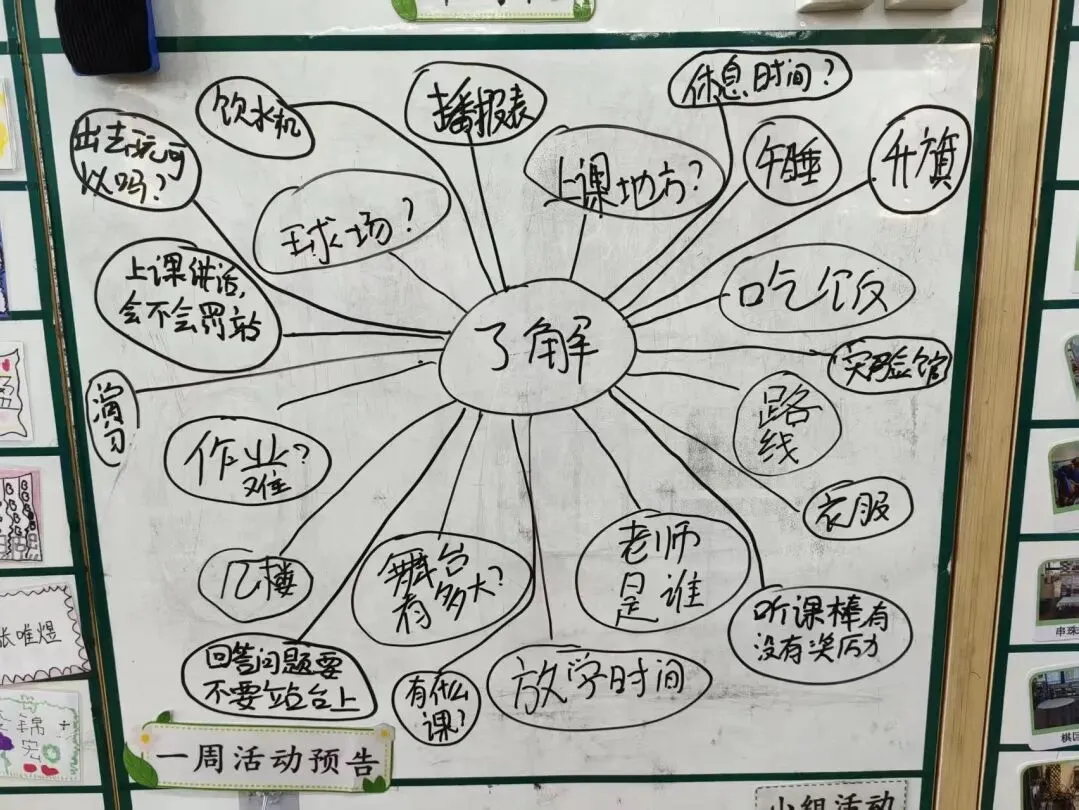 饮水机
播报表
休息时间?
出去玩可
以吗?
球场?
上课地方?
午睡
升旗
上课讲话,
会不会罚站
了解
吃饭
实验馆
演习
作业?
难
路线
衣服
几楼
舞台
有多大?
老师
是谁
听课棒有
没有奖历力
回答问题要
不要站台上
有什么
课?
放学时间
张唯煜
锦
宏
一周活动预告
小组活动
串珠
棋